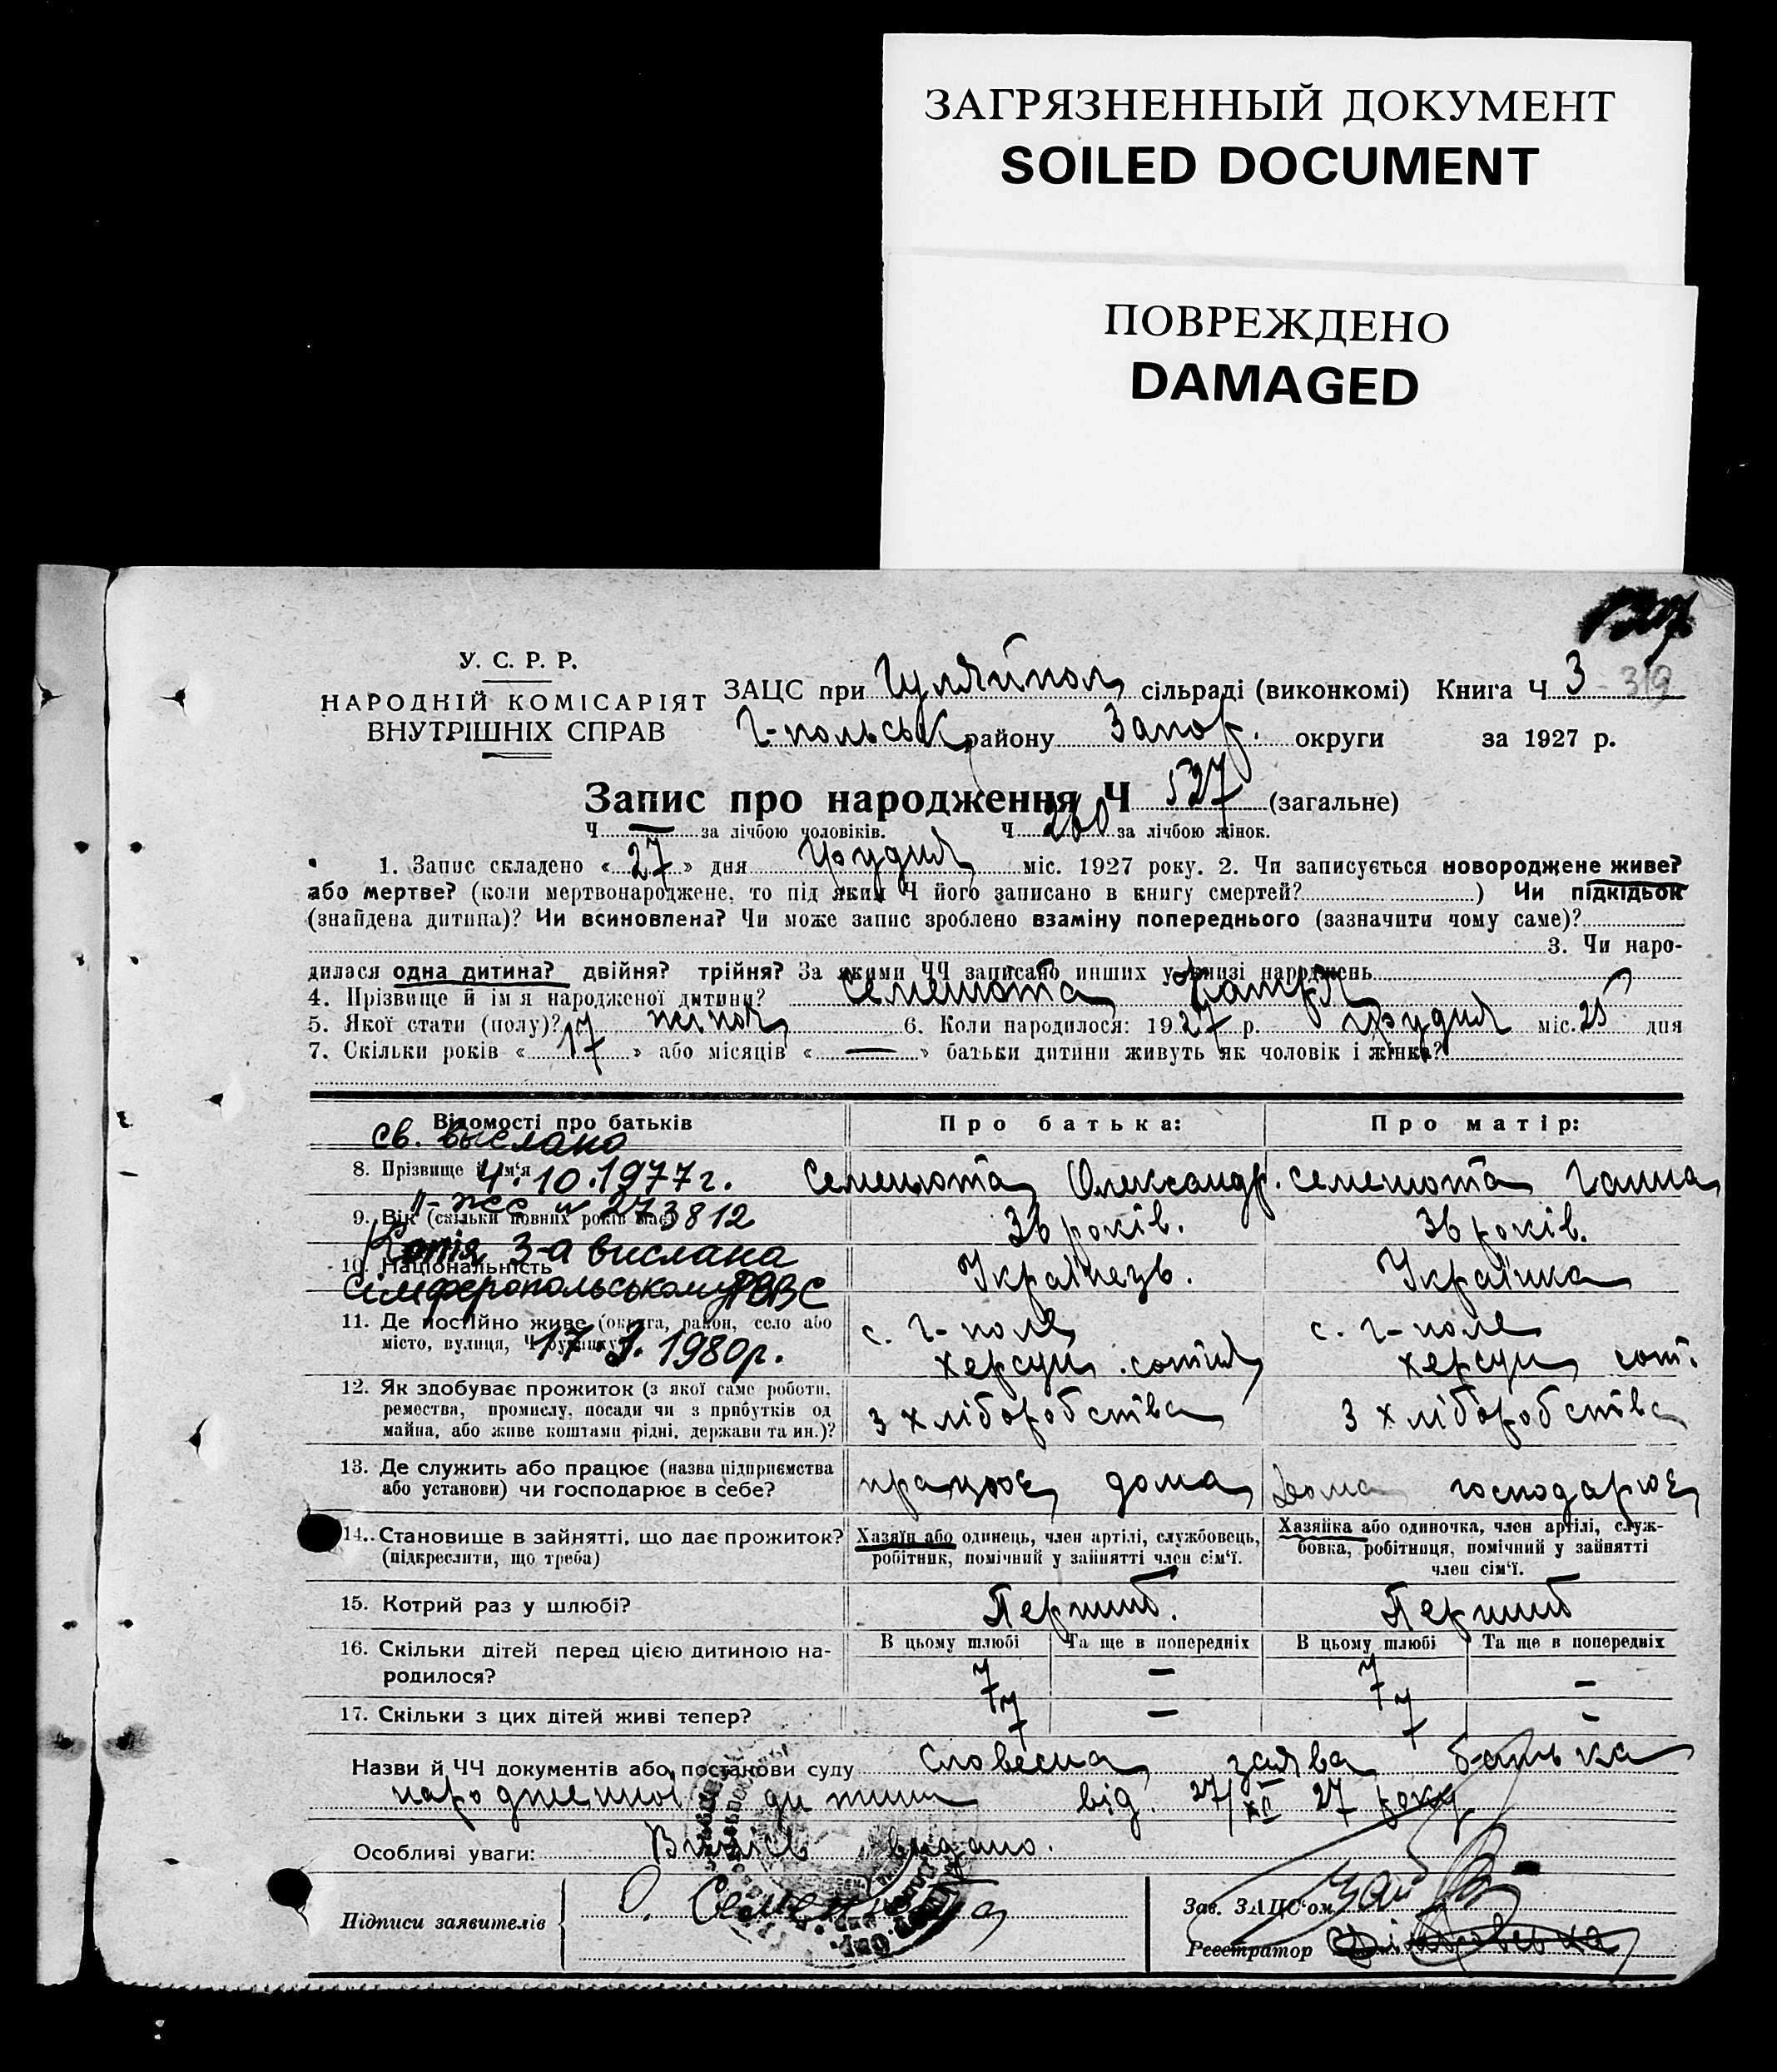 ЗАГРЯЗНЕННЫЙ ДОКУМЕНТ
SOILED DOCUMENT
ПОВРЕЖДЕНО
DAMAGED
У. С. Р. Р.
НАРОДНІЙ КОМІСАРІЯТ
ВНУТРІШНІХ СПРАВ
ЗАЦС при Гуляйпол сільраді (виконкомі) Книга Ч 3 319
Г-польськ району Запор. округи за 1927 р.
Запис про народження Ч 527 (загальне)
Ч — за лічбою чоловіків. Ч 260 за лічбою жінок.
1. Запис складено «27» дня грудня міс. 1927 року. 2. Чи записується новороджене живе?
або мертве? (коли мертвонароджене, то під яким Ч його записано в книгу смертей? ) Чи підкідьок
(знайдена дитина)? Чи всиновлена? Чи може запис зроблено взаміну попереднього (зазначити чому саме)?
3. Чи наро-
дилася одна дитина? двійня? трійня? За якими ЧЧ записано инших у книзі народжень
4. Прізвище й ім'я народженої дитини? Семенюта
5. Якої стати (полу)? жінок 6. Коли народилося: 1927 р. грудня міс. 25 дня
7. Скільки років «17» або місяців «—» батьки дитини живуть як чоловік і жінка?
Відомості про батьків Про батька: Про матір:
св. выслано
8. Прізвище й ім'я Семенюта Олександр. Семенюта Ганна
4.10.1977г.
9. Вік (скільки повних років має) 36 років. 36 років.
II-ЖС № 273812
Копія 3-а вислана
10. Національність Українець. Українка
Сімферопольському РВВС
11. Де постійно живе (округа, район, село або с. Г-поле с. Г-поле
місто, вулиця, Ч будинку) херсун. сотня херсун сот.
17.3.1980р.
12. Як здобуває прожиток (з якої саме роботи,
ремества, промислу, посади чи з прибутків од з хліборобства з хліборобства
майна, або живе коштами рідні, держави та ин.)?
13. Де служить або працює (назва підприємства
або установи) чи господарює в себе? працює дома дома господарює
14. Становище в зайнятті, що дає прожиток? Хазяїн або одинець, член артілі, службовець, Хазяйка або одиночка, член артілі, служ-
(підкреслити, що треба) робітник, помічний у зайнятті член сім'ї. бовка, робітниця, помічний у зайнятті
член сім'ї.
15. Котрий раз у шлюбі? Перший. Перший
16. Скільки дітей перед цією дитиною на- В цьому шлюбі Та ще в попередніх В цьому шлюбі Та ще в попередніх
родилося? 7 — 7 —
17. Скільки з цих дітей живі тепер? 7 — 7 —
Назви й ЧЧ документів або постанови суду Словесна заява батька
народженної дитини від 27/XII 27 року
Особливі уваги: Випис видано.
Підписи заявителів О. Семенюта
Зав. ЗАЦС'ом
Реєстратор